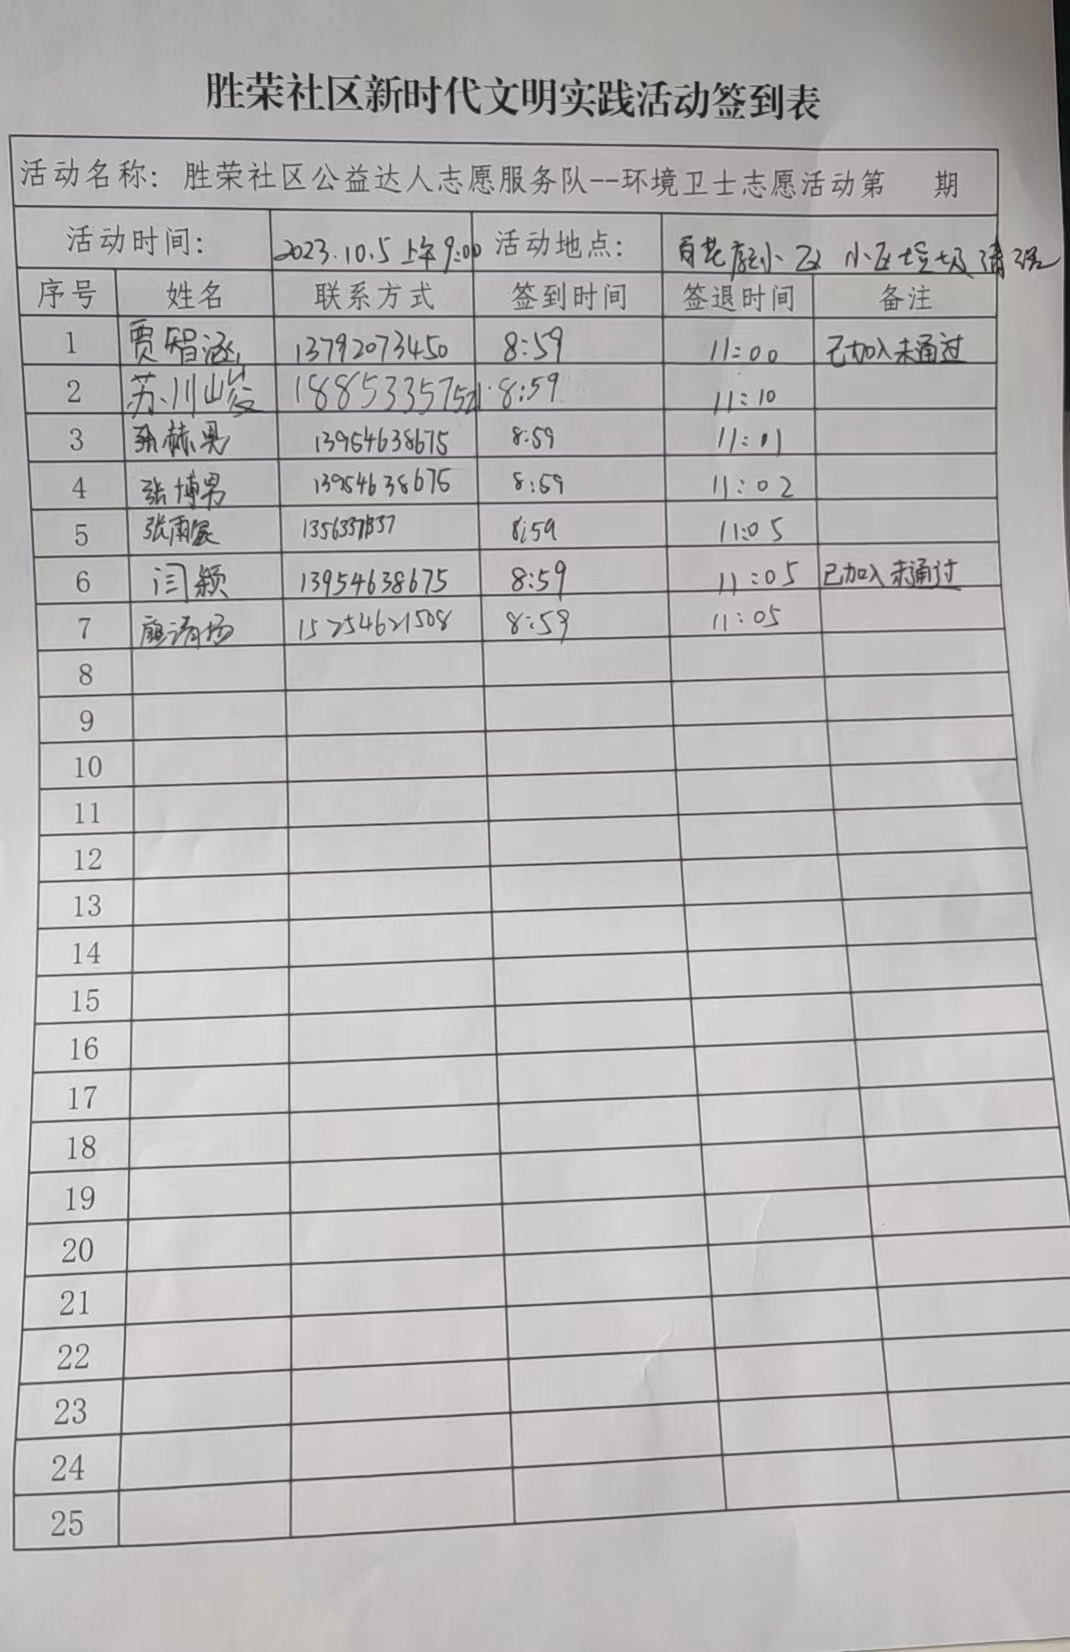 胜荣社区新时代文明实践活动签到表
活动名称：胜荣社区公益达人志愿服务队--环境卫士志愿活动第 期
活动时间： 2023.10.5 上午9:00 活动地点： 百花庭小区 小区垃圾清理
序号 姓名 联系方式 签到时间 签退时间 备注
1 贾智涵 13792073450 8:59 11:00 已加入未通过
2 苏川峻 8:59 11:10
3 张赫男 13954638675 8:59 11:01
4 张博男 13954638675 8:59 11:02
5 张雨宸 8:59 11:05
6 闫颖 13954638675 8:59 11:05 已加入未通过
7 15254621508 8:59 11:05
8
9
10
11
12
13
14
15
16
17
18
19
20
21
22
23
24
25